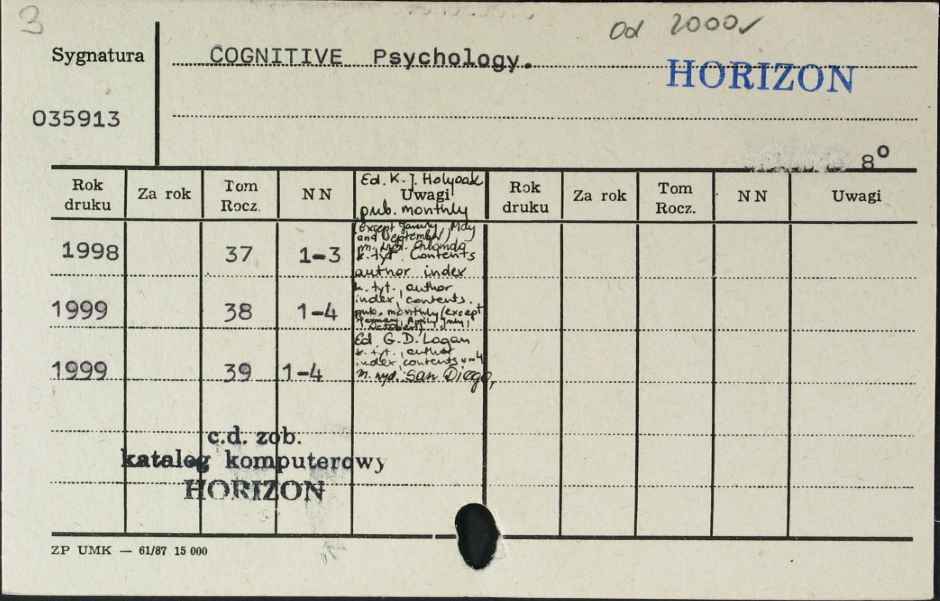 3
Od 2000
Sygnatura COGNITIVE Psychology.
HORIZON
035913
8°
Rok druku Za rok Tom Rocz. NN Uwagi Rok druku Za rok Tom Rocz. NN Uwagi
Ed. K. J. Holyoak
pub. monthly
(except January, May
and September)
m. wyd. Orlando
1998 37 1-3 k. tyt. Contents
author index
k. tyt., author
index, contents.
1999 38 1-4 pub. monthly (except
April, July,
October)
Ed G. D. Logan
k. tyt., author
index, contents
1999 39 1-4 m. wyd. San Diego,
c.d. zob.
katalog komputerowy
HORIZON
ZP UMK — 61/87 15 000